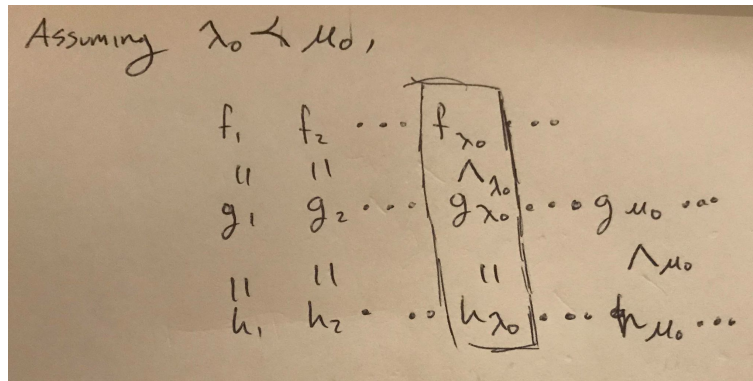 Assuming λ₀ ≺ μ₀,
f₁ f₂ ... f_λ₀ ...
= = ∧_λ₀
g₁ g₂ ... g_λ₀ ... g_μ₀ ...
= = = ∧_μ₀
h₁ h₂ ... h_λ₀ ... h_μ₀ ...